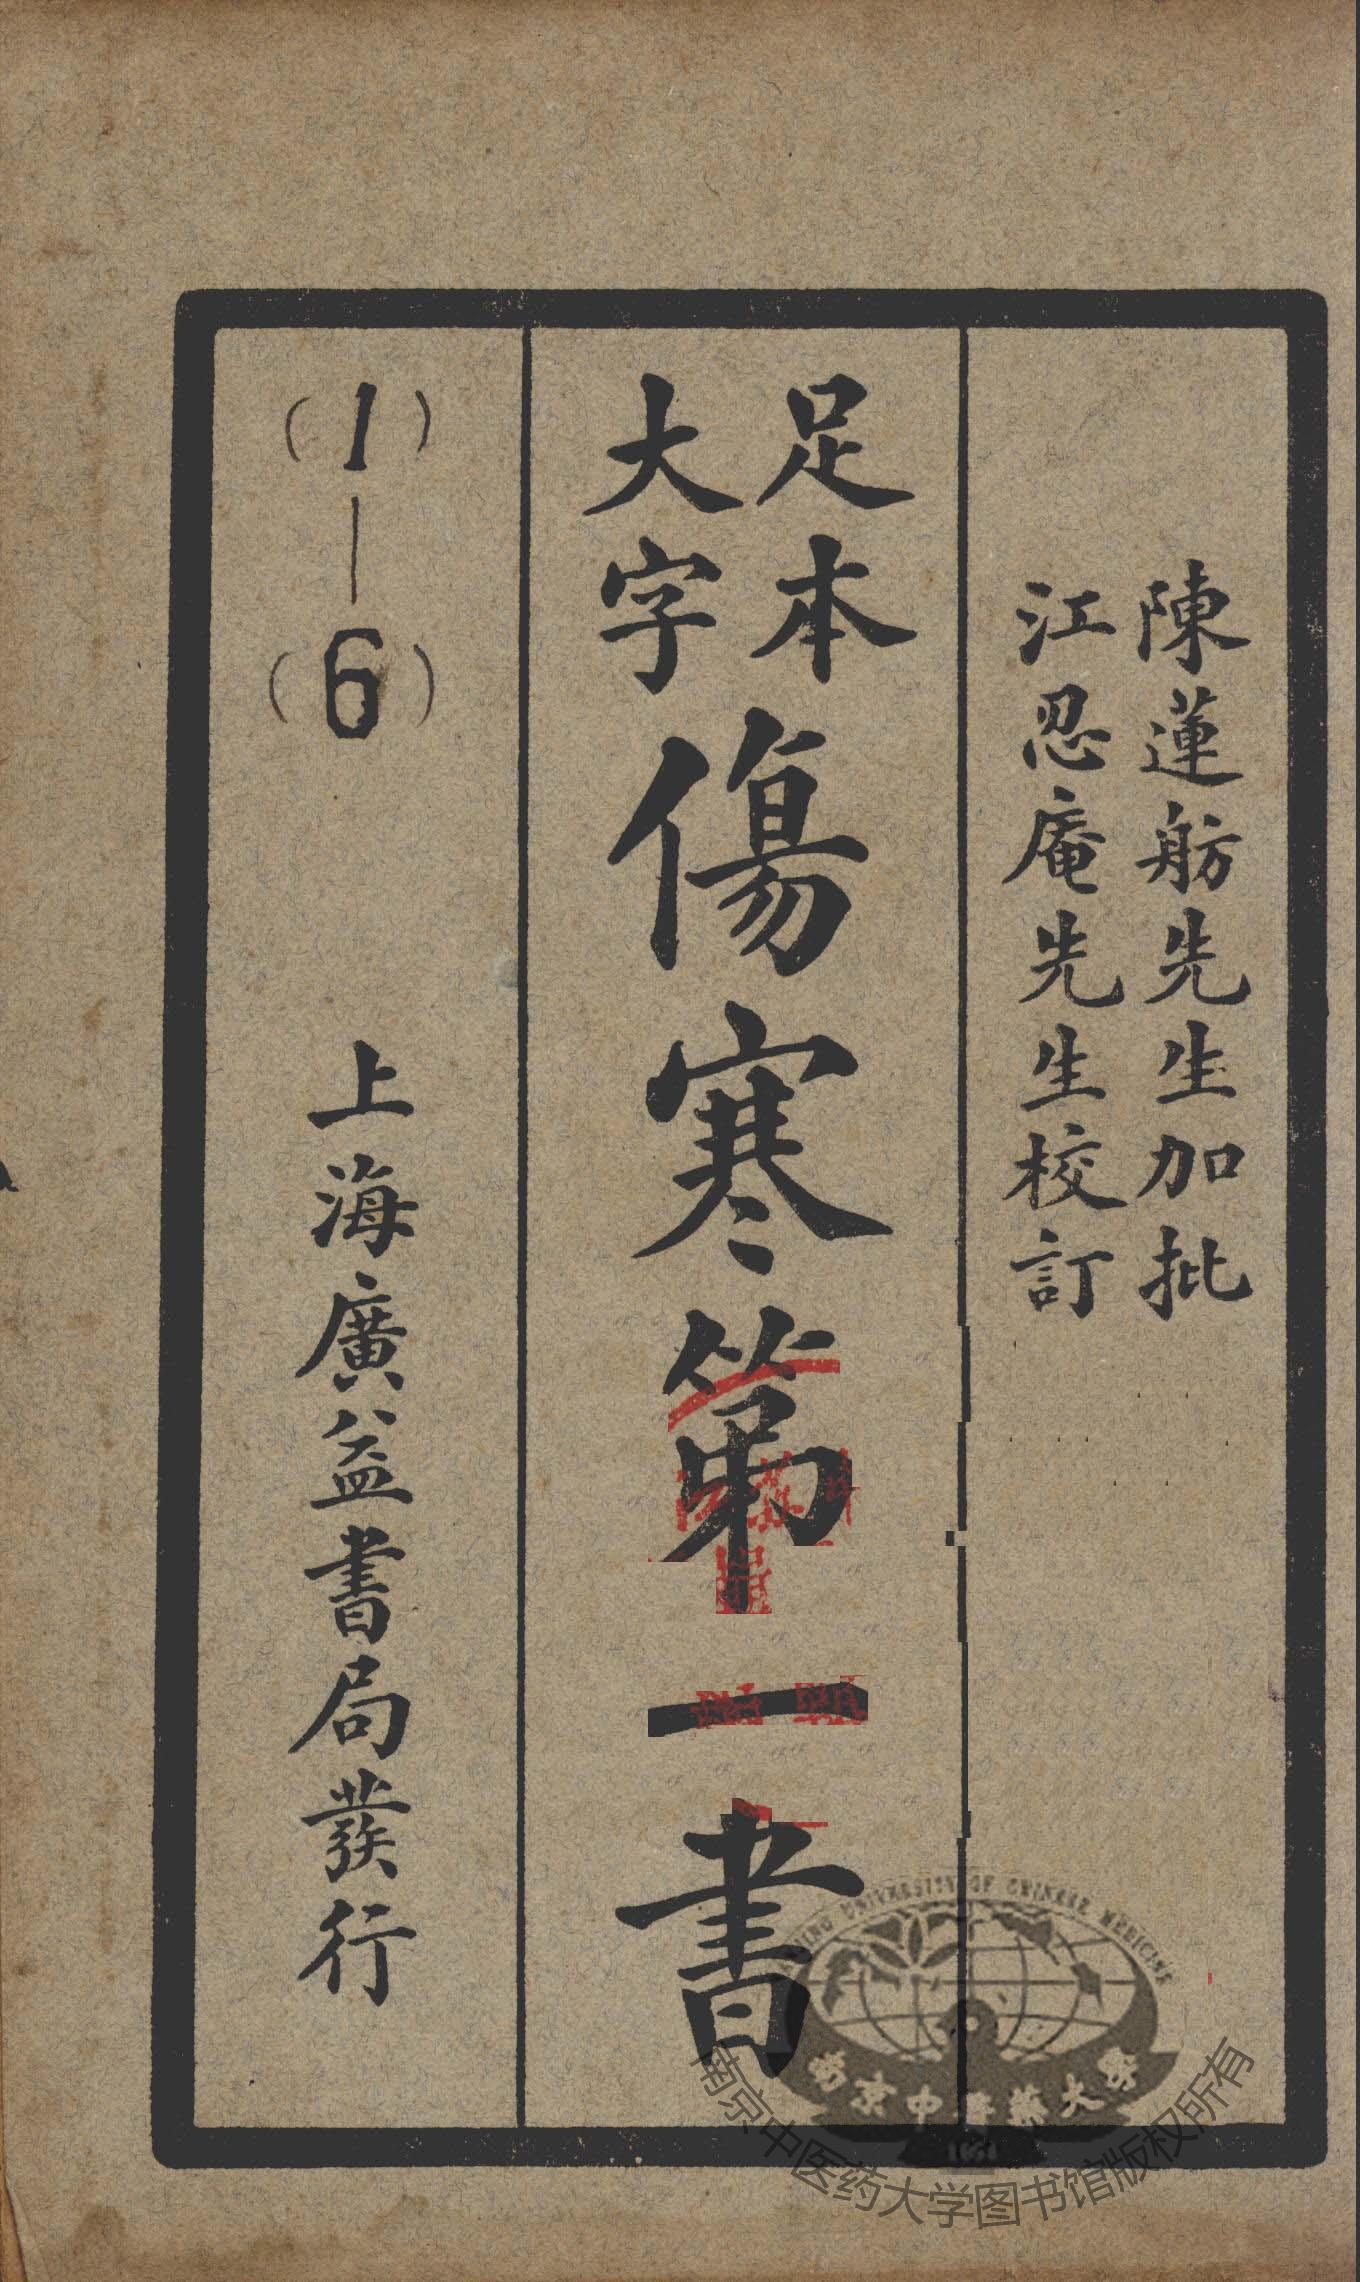 陳蓮舫先生加批
江忍庵先生校訂
足本
大字
傷寒第一書
(1)—(6)
上海廣益書局發行
NANJING UNIVERSITY OF CHINESE MEDICINE
南京中醫藥大學
南京中医药大学图书馆版权所有